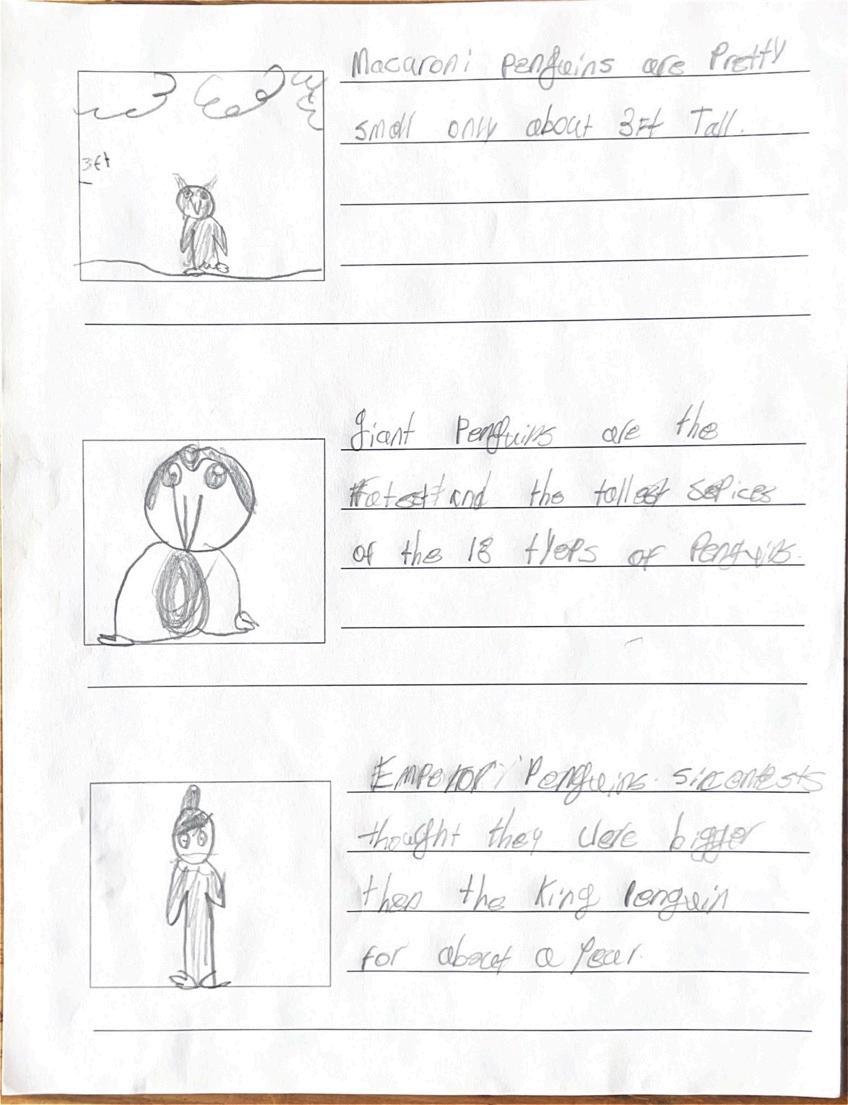 Macaroni penguins are Pretty
small only about 3Ft Tall.
3ft
giant Penguins are the
fatest and the tallest sepices
of the 18 tyeps of Penguins.
Emperor Penguins. sincentests
thought they were bigger
then the King Penguin
for about a year.